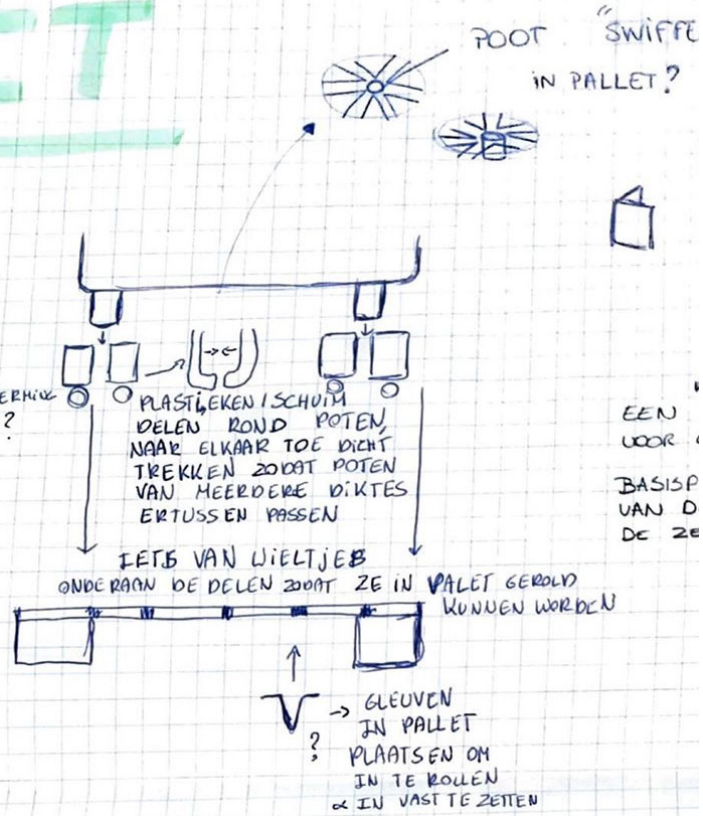 ET
POOT "SWIFFE
IN PALLET?
?
PLASTIEKEN / SCHUIM
DELEN ROND POTEN,
NAAR ELKAAR TOE DICHT
TREKKEN ZODAT POTEN
VAN MEERDERE DIKTES
ERTUSSEN PASSEN
EEN
VOOR
BASISP
VAN D
DE ZE
IETS VAN WIELTJES
ONDERAAN DE DELEN ZODAT ZE IN PALET GEROLD
KUNNEN WORDEN
-> GLEUVEN
IN PALLET
? PLAATSEN OM
IN TE ROLLEN
& IN VAST TE ZETTEN